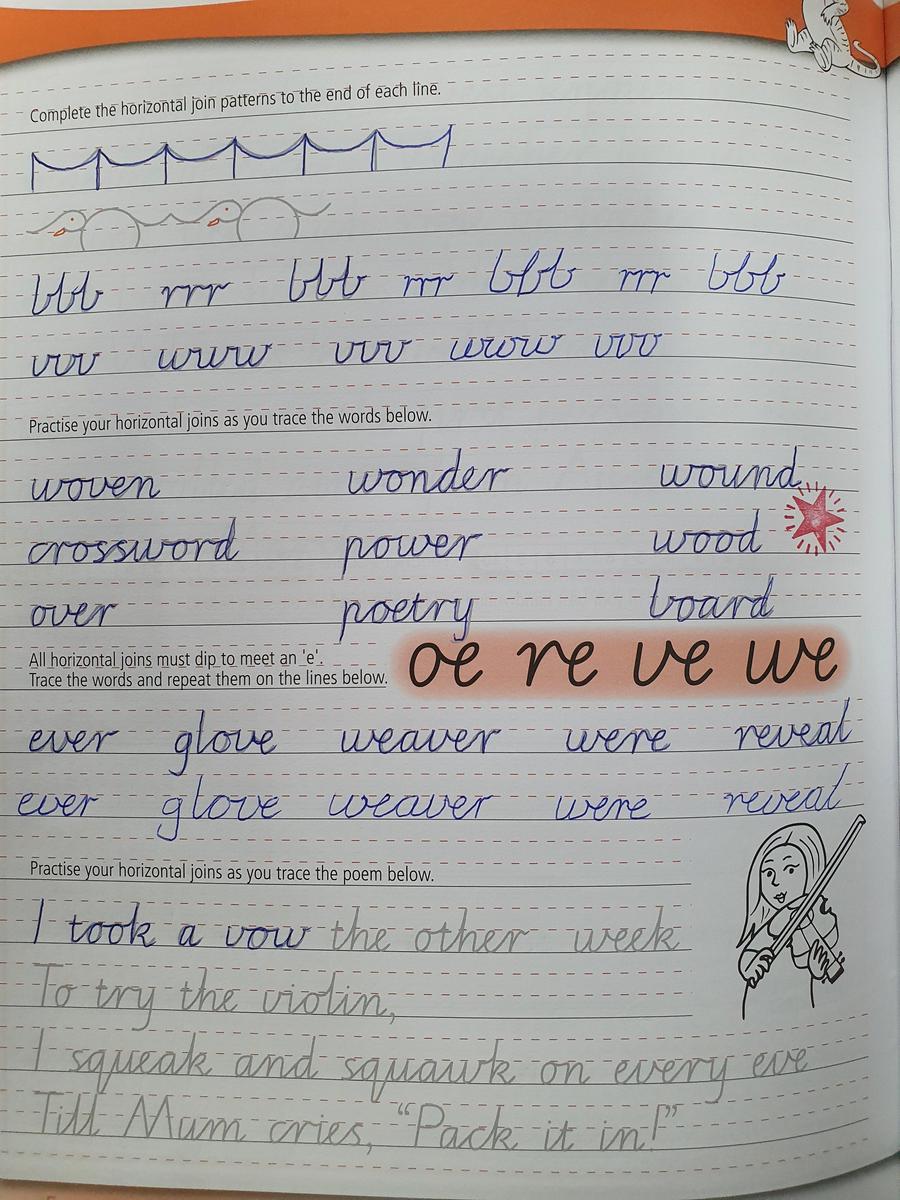 Complete the horizontal join patterns to the end of each line.
bbb rrr bbb rrr bbb rrr bbb
vvv www vvv www vvv
Practise your horizontal joins as you trace the words below.
woven wonder wound
crossword power wood
over poetry board
All horizontal joins must dip to meet an 'e'.
Trace the words and repeat them on the lines below.
oe re ve we
ever glove weaver were reveal
ever glove weaver were reveal
Practise your horizontal joins as you trace the poem below.
I took a vow the other week
To try the violin,
I squeak and squawk on every eve
Till Mum cries, “Pack it in!”